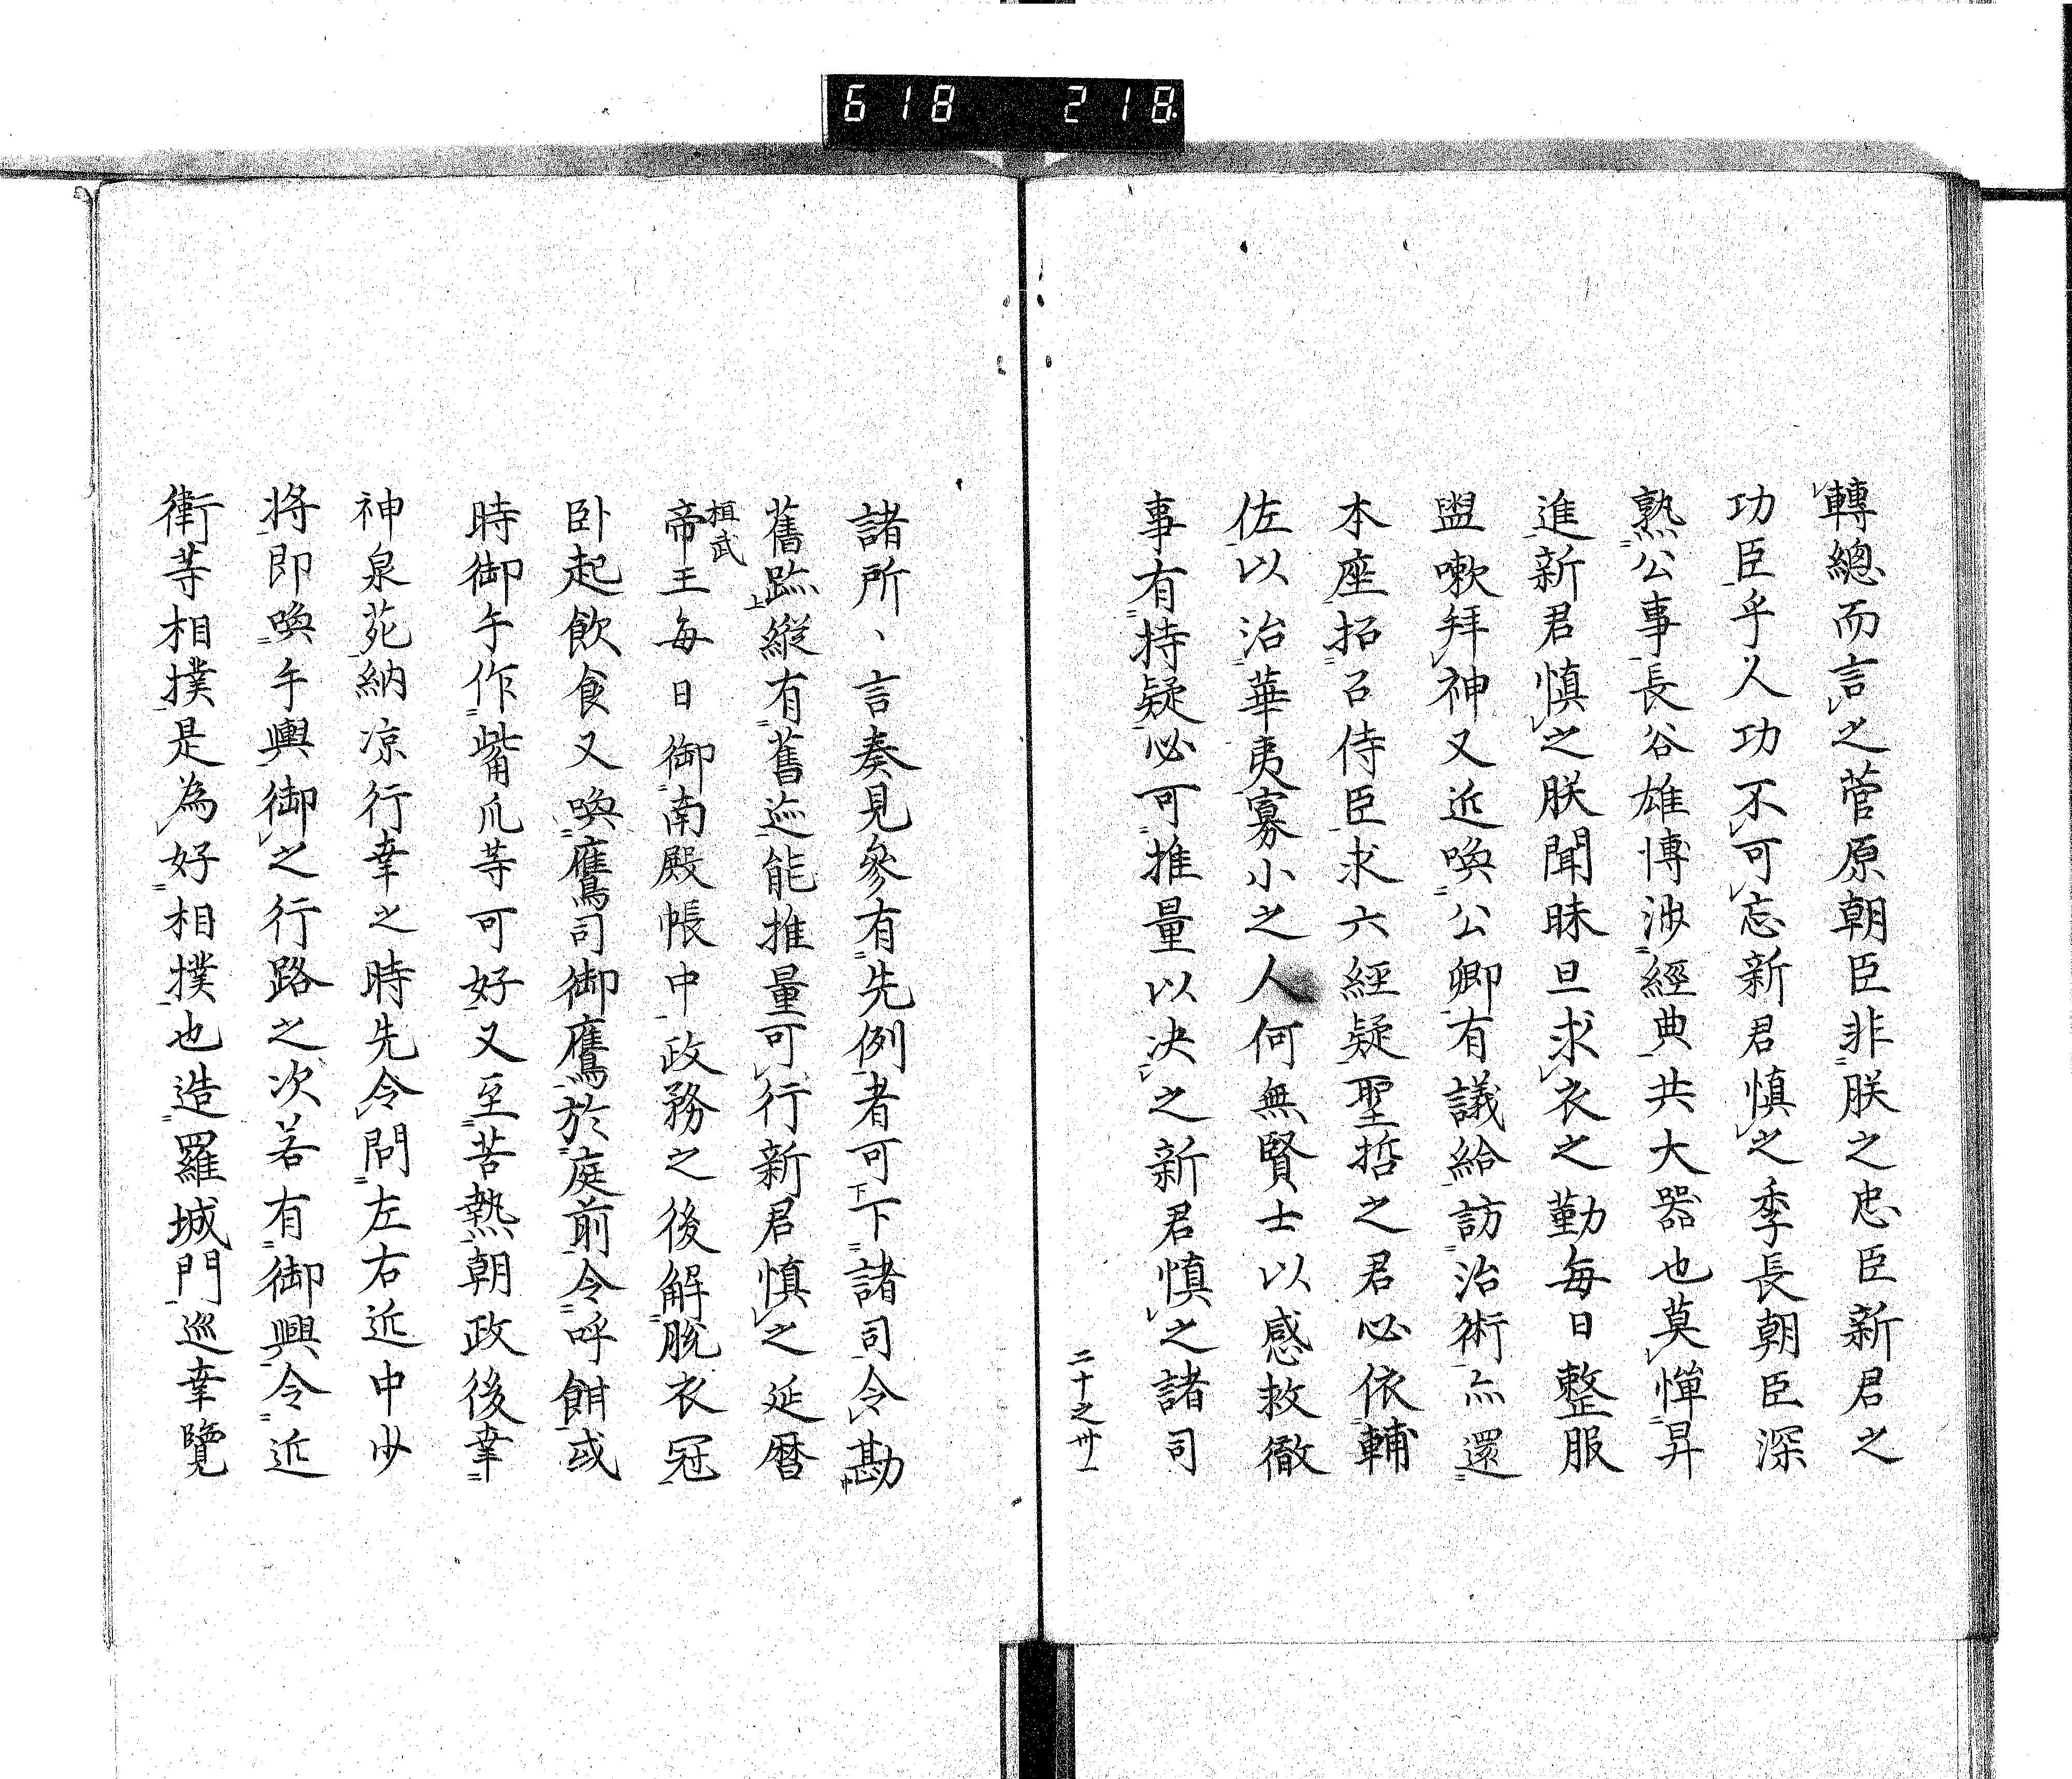 618 218
轉總而言之菅原朝臣非朕之忠臣新君之
功臣乎人功不可忘新君慎之季長朝臣深
熟公事長谷雄博渉經典共大器也莫憚昇
進新君慎之朕聞昧旦求衣之勤毎日整服
盥嗽拜神又近喚公卿有議給訪治術亦還
本座招召侍臣求六經疑聖哲之君必依輔
佐以治華夷寡小之人何無賢士以感救徹
事有持疑必可推量以决之新君慎之諸司
二十之卅一
諸所、言奏見參有先例者可下下諸司令勘
舊跡縱有舊迹能推量可行新君慎之延暦
桓武
帝王毎日御南殿帳中政務之後解脱衣冠
卧起飲食又喚鷹司御鷹於庭前令呼餌或
時御手作觜爪等可好又至苦熱朝政後幸
神泉苑納凉行幸之時先令問左右近中少
將即喚手輿御之行路之次若有御興令近
衛等相撲是為好相撲也造羅城門巡幸覽